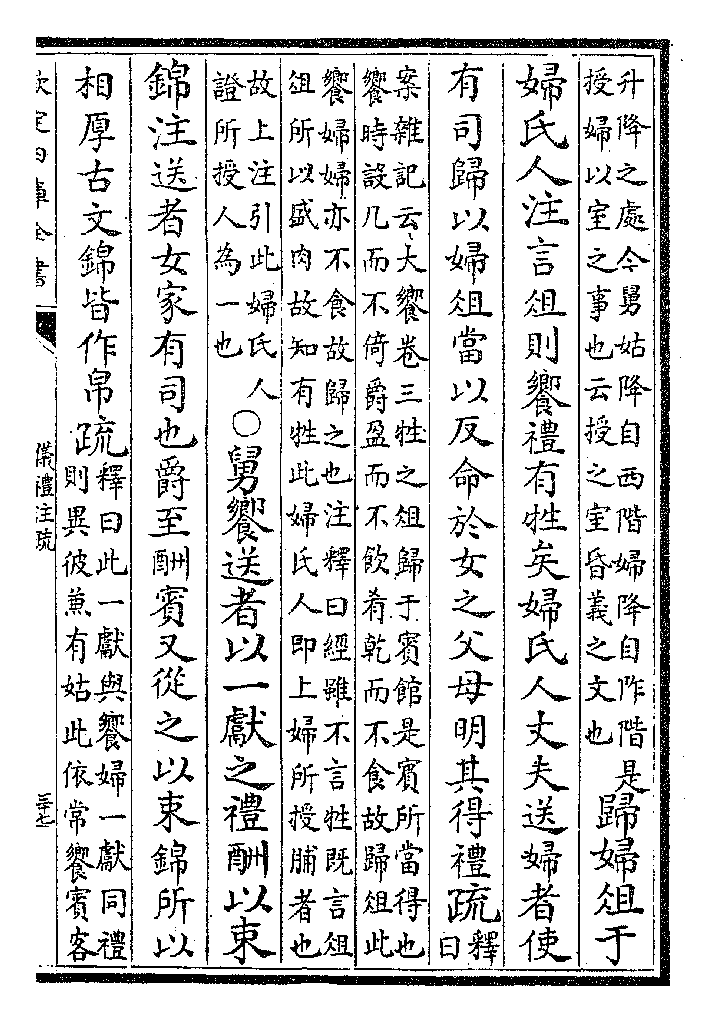 升降之處今舅姑降自西階婦降自阼階是
授婦以室之事也云授之室昏義之文也
歸婦俎于
婦氏人注言俎則饗禮有牲矣婦氏人丈夫送婦者使
有司歸以婦俎當以反命於女之父母明其得禮疏釋曰
案雜記云大饗卷三牲之俎歸于賓館是賓所當得也
饗時設几而不倚爵盈而不飲肴乾而不食故歸俎此
饗婦婦亦不食故歸之也注釋曰經雖不言牲既言俎
俎所以盛肉故知有牲此婦氏人即上婦所授脯者也
故上注引此婦氏人
證所授人為一也
○舅饗送者以一獻之禮酬以束
錦注送者女家有司也爵至酬賓又從之以束錦所以
相厚古文錦皆作帛疏
釋曰此一獻與饗婦一獻同禮
則異彼兼有姑此依常饗賓客
欽定四庫全書
儀禮注疏
三十七